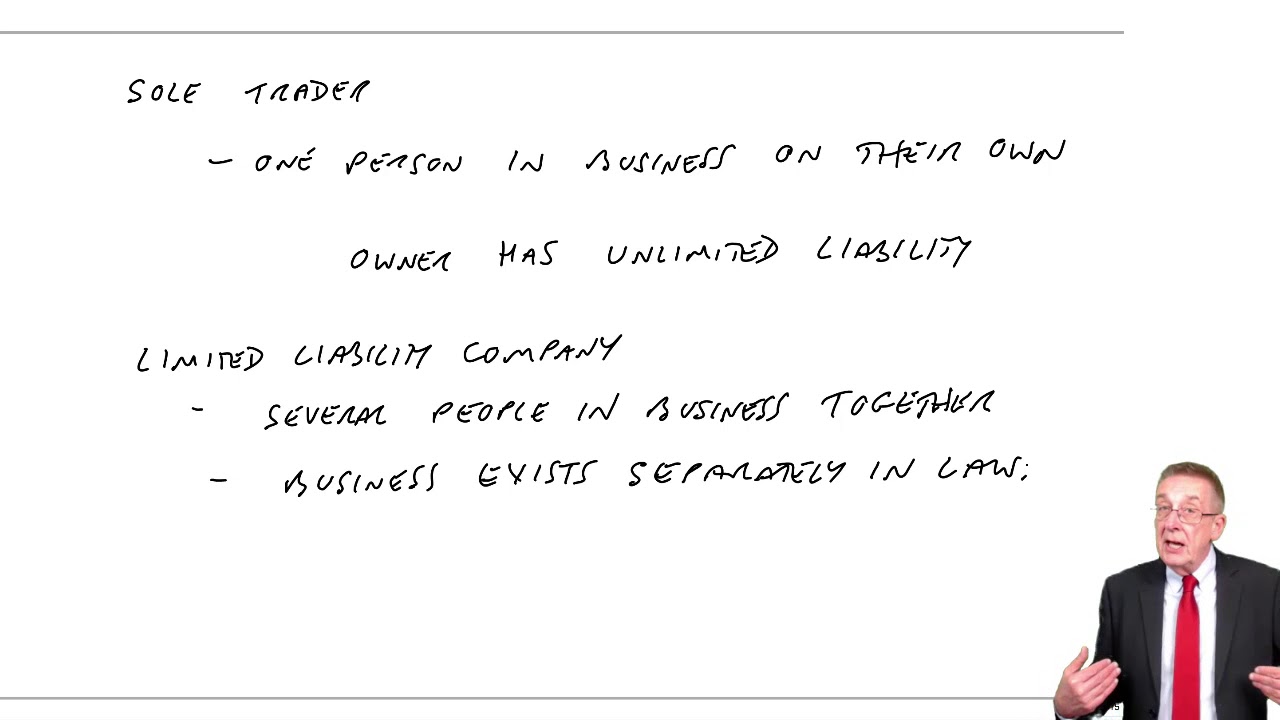 SOLE TRADER
- ONE PERSON IN BUSINESS ON THEIR OWN
OWNER HAS UNLIMITED LIABILITY
LIMITED LIABILITY COMPANY
- SEVERAL PEOPLE IN BUSINESS TOGETHER
- BUSINESS EXISTS SEPARATELY IN LAW: